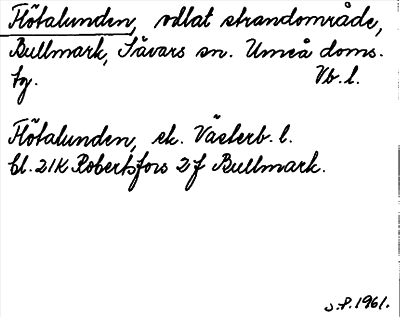 Flötalunden, odlat strandområde,
Bullmark, Sävars sn. Umeå doms.
tg. Vb. l.
Flötalunden, ek. Västerb. l.
bl. 21K Robertsfors 2f Bullmark.
J.P. 1961.